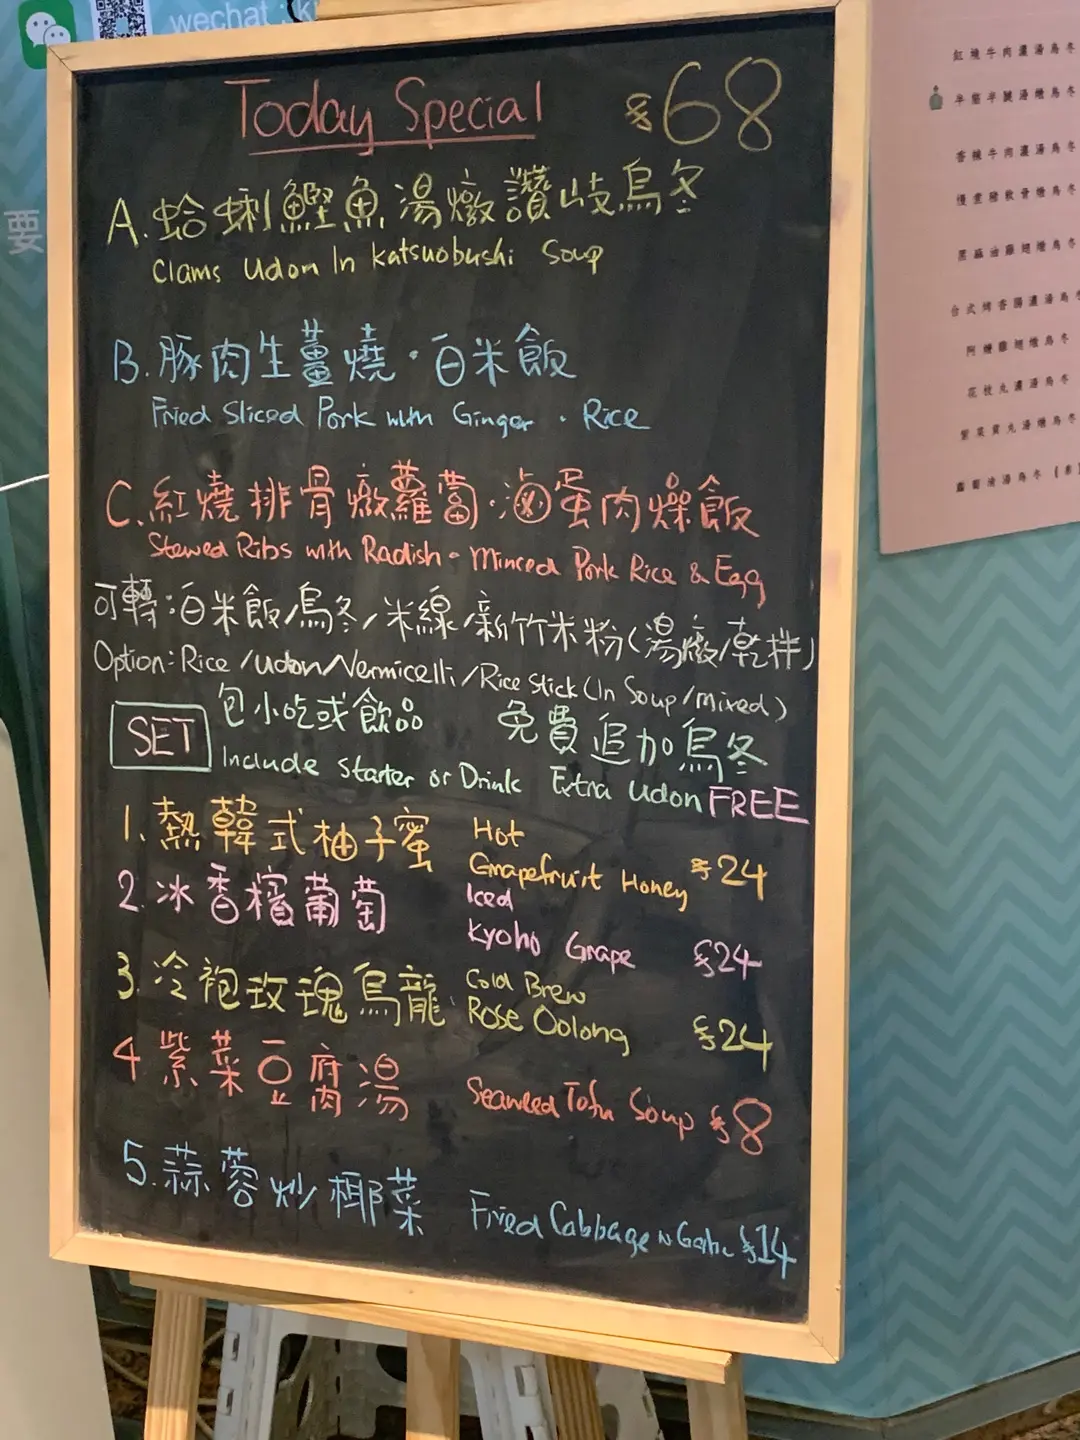 wechat : k
要
Today Special $68
A. 蛤蜊鰹魚湯燉讚岐烏冬
Clams Udon In Katsuobushi Soup
B. 豚肉生薑燒·白米飯
Fried Sliced Pork with Ginger · Rice
C. 紅燒排骨燉蘿蔔·滷蛋肉燥飯
Stewed Ribs with Radish · Minced Pork Rice & Egg
可轉:白米飯/烏冬/米線/新竹米粉(湯燉/乾拌)
Option: Rice /udon/Vermicelli/Rice Stick (In Soup/mixed)
SET 包小吃或飲品 免費追加烏冬
Include Starter or Drink Extra Udon FREE
1. 熱韓式柚子蜜 Hot Grapefruit Honey $24
2. 冰香檳葡萄 Iced Kyoho Grape $24
3. 冷袍玫瑰烏龍 Cold Brew Rose Oolong $24
4 紫菜豆腐湯 Seaweed Tofu Soup $8
5. 蒜蓉炒椰菜 Fried Cabbage w Garlic $14
紅燒牛肉濃湯烏冬
半筋半腱湯燉烏冬
香辣牛肉濃湯烏冬
慢煮豬軟骨燉烏冬
黑麻油雞翅燉烏冬
台式烤香腸濃湯烏冬
阿嬤雞翅燉烏冬
花枝丸濃湯烏冬
紫菜貢丸湯燉烏冬